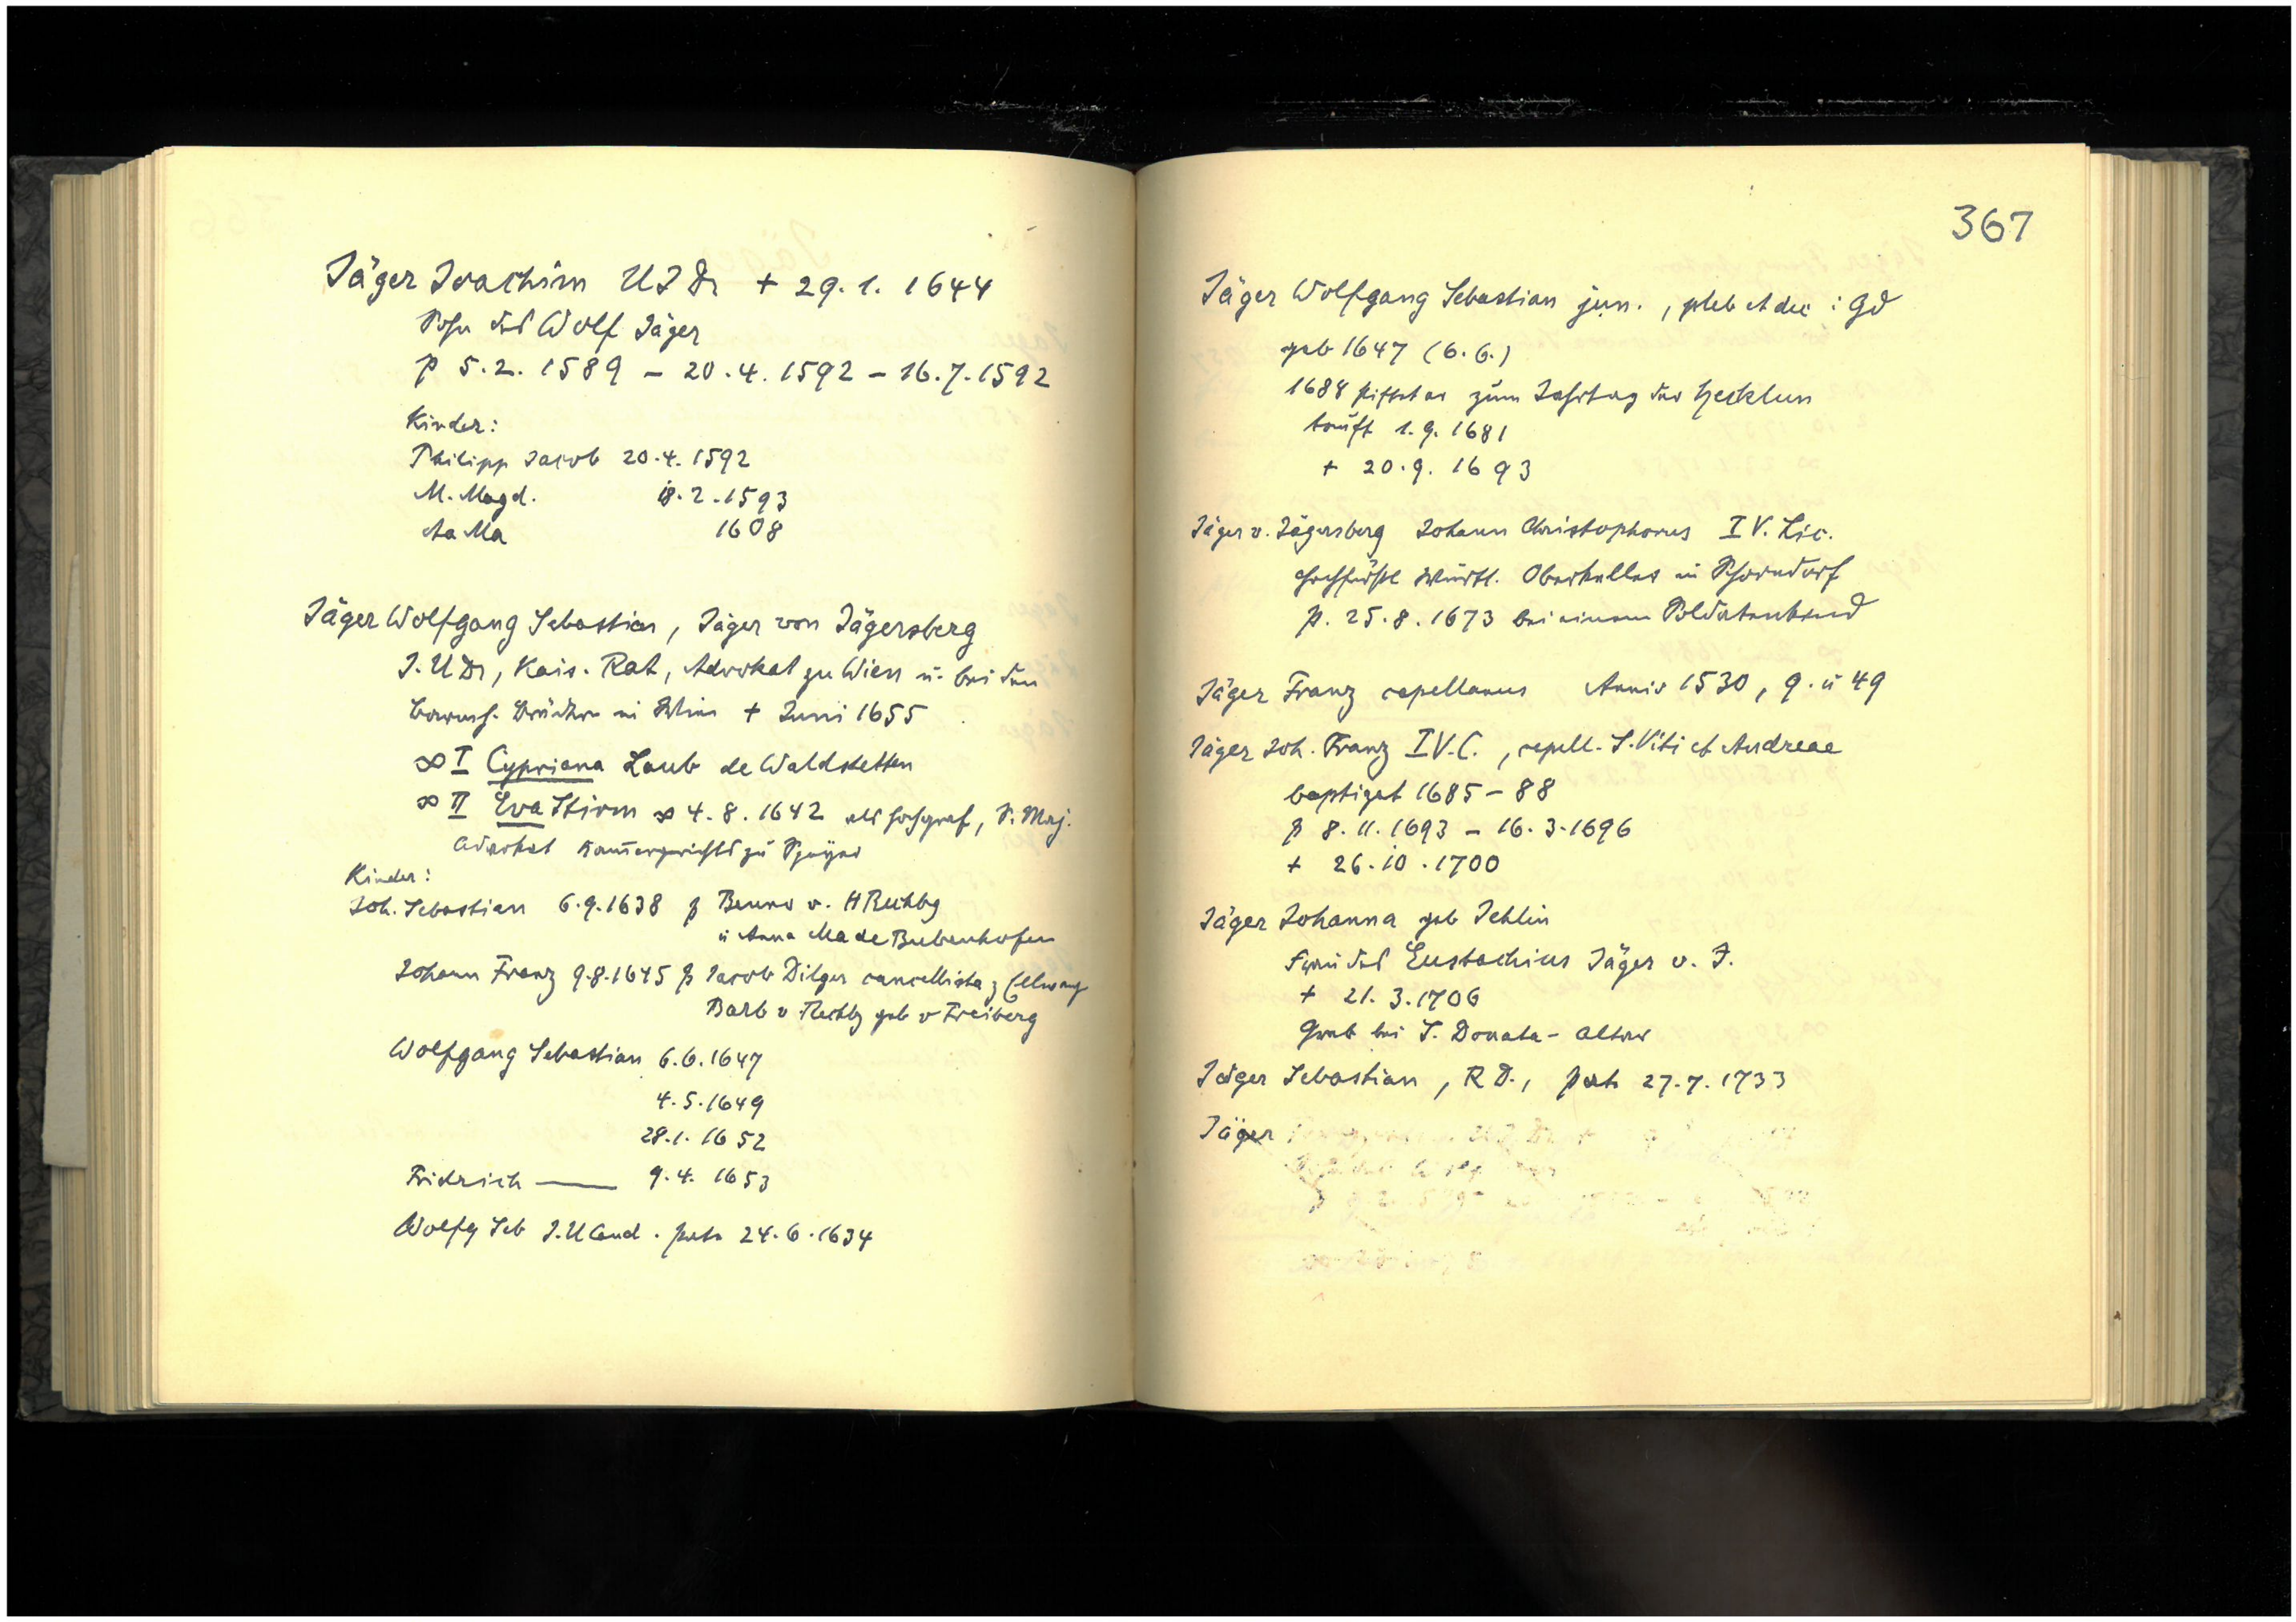 Jäger Joachim U J Dr + 29.1.1644
Sohn des Wolf Jäger
p 5.2.1589 – 20.4.1592 – 16.7.1592
Kinder:
Philipp Jacob 20.4.1592
M. Magd. 18.2.1593
Aa Ma 1608
Jäger Wolfgang Sebastian, Jäger von Jägersberg
J. U Dr, Kais. Rat, Advokat zu Wien u. bei den
Brüdern in + Juni 1655
∞ I Cypriana Laub de Waldstetten
∞ II Eva Stirm ∞ 4.8.1642 als hochgräf, S. Maj.
Advokat Kam̄ergerichts zu Speyer
Kinder:
Joh. Sebastian 6.9.1638 p Benno v. H Rechbg
u Anna Ma de Bubenhofen
Johann Franz 9.8.1645 p Jacob Dilger cancellista z Ellwang
Barb v Rechbg geb v Freiberg
Wolfgang Sebastian 6.6.1647
4.5.1649
29.1.1652
Fridrich —— 9.4.1653
Wolfg Seb J. U Cand. patr 24.6.1634
367
Jäger Wolfgang Sebastian jun., pleb et dec : Gd
geb 1647 (6.6.)
1684 stiftet er zum Jahrtag der
tauft 1.9.1681
+ 20.9.1693
Jäger v. Jägersberg Johann Christophorus I V. Lic.
hochfürstl Württ. Oberkeller in Schorndorf
p. 25.8.1673 bei einem Soldatenkind
Jäger Franz capellanus Anniv 1530, 9. u 49
Jäger Joh. Franz I V. C., capell. S. Viti et Andreae
baptizat 1685 – 88
p 8.11.1693 – 16.3.1696
+ 26.10.1700
Jäger Johanna geb Jehlin
Frau des Eustachius Jäger v. J.
+ 21.3.1706
Grab bei S. Donata-Altar
Jäger Sebastian, R D., patr 27.7.1733
Jäger